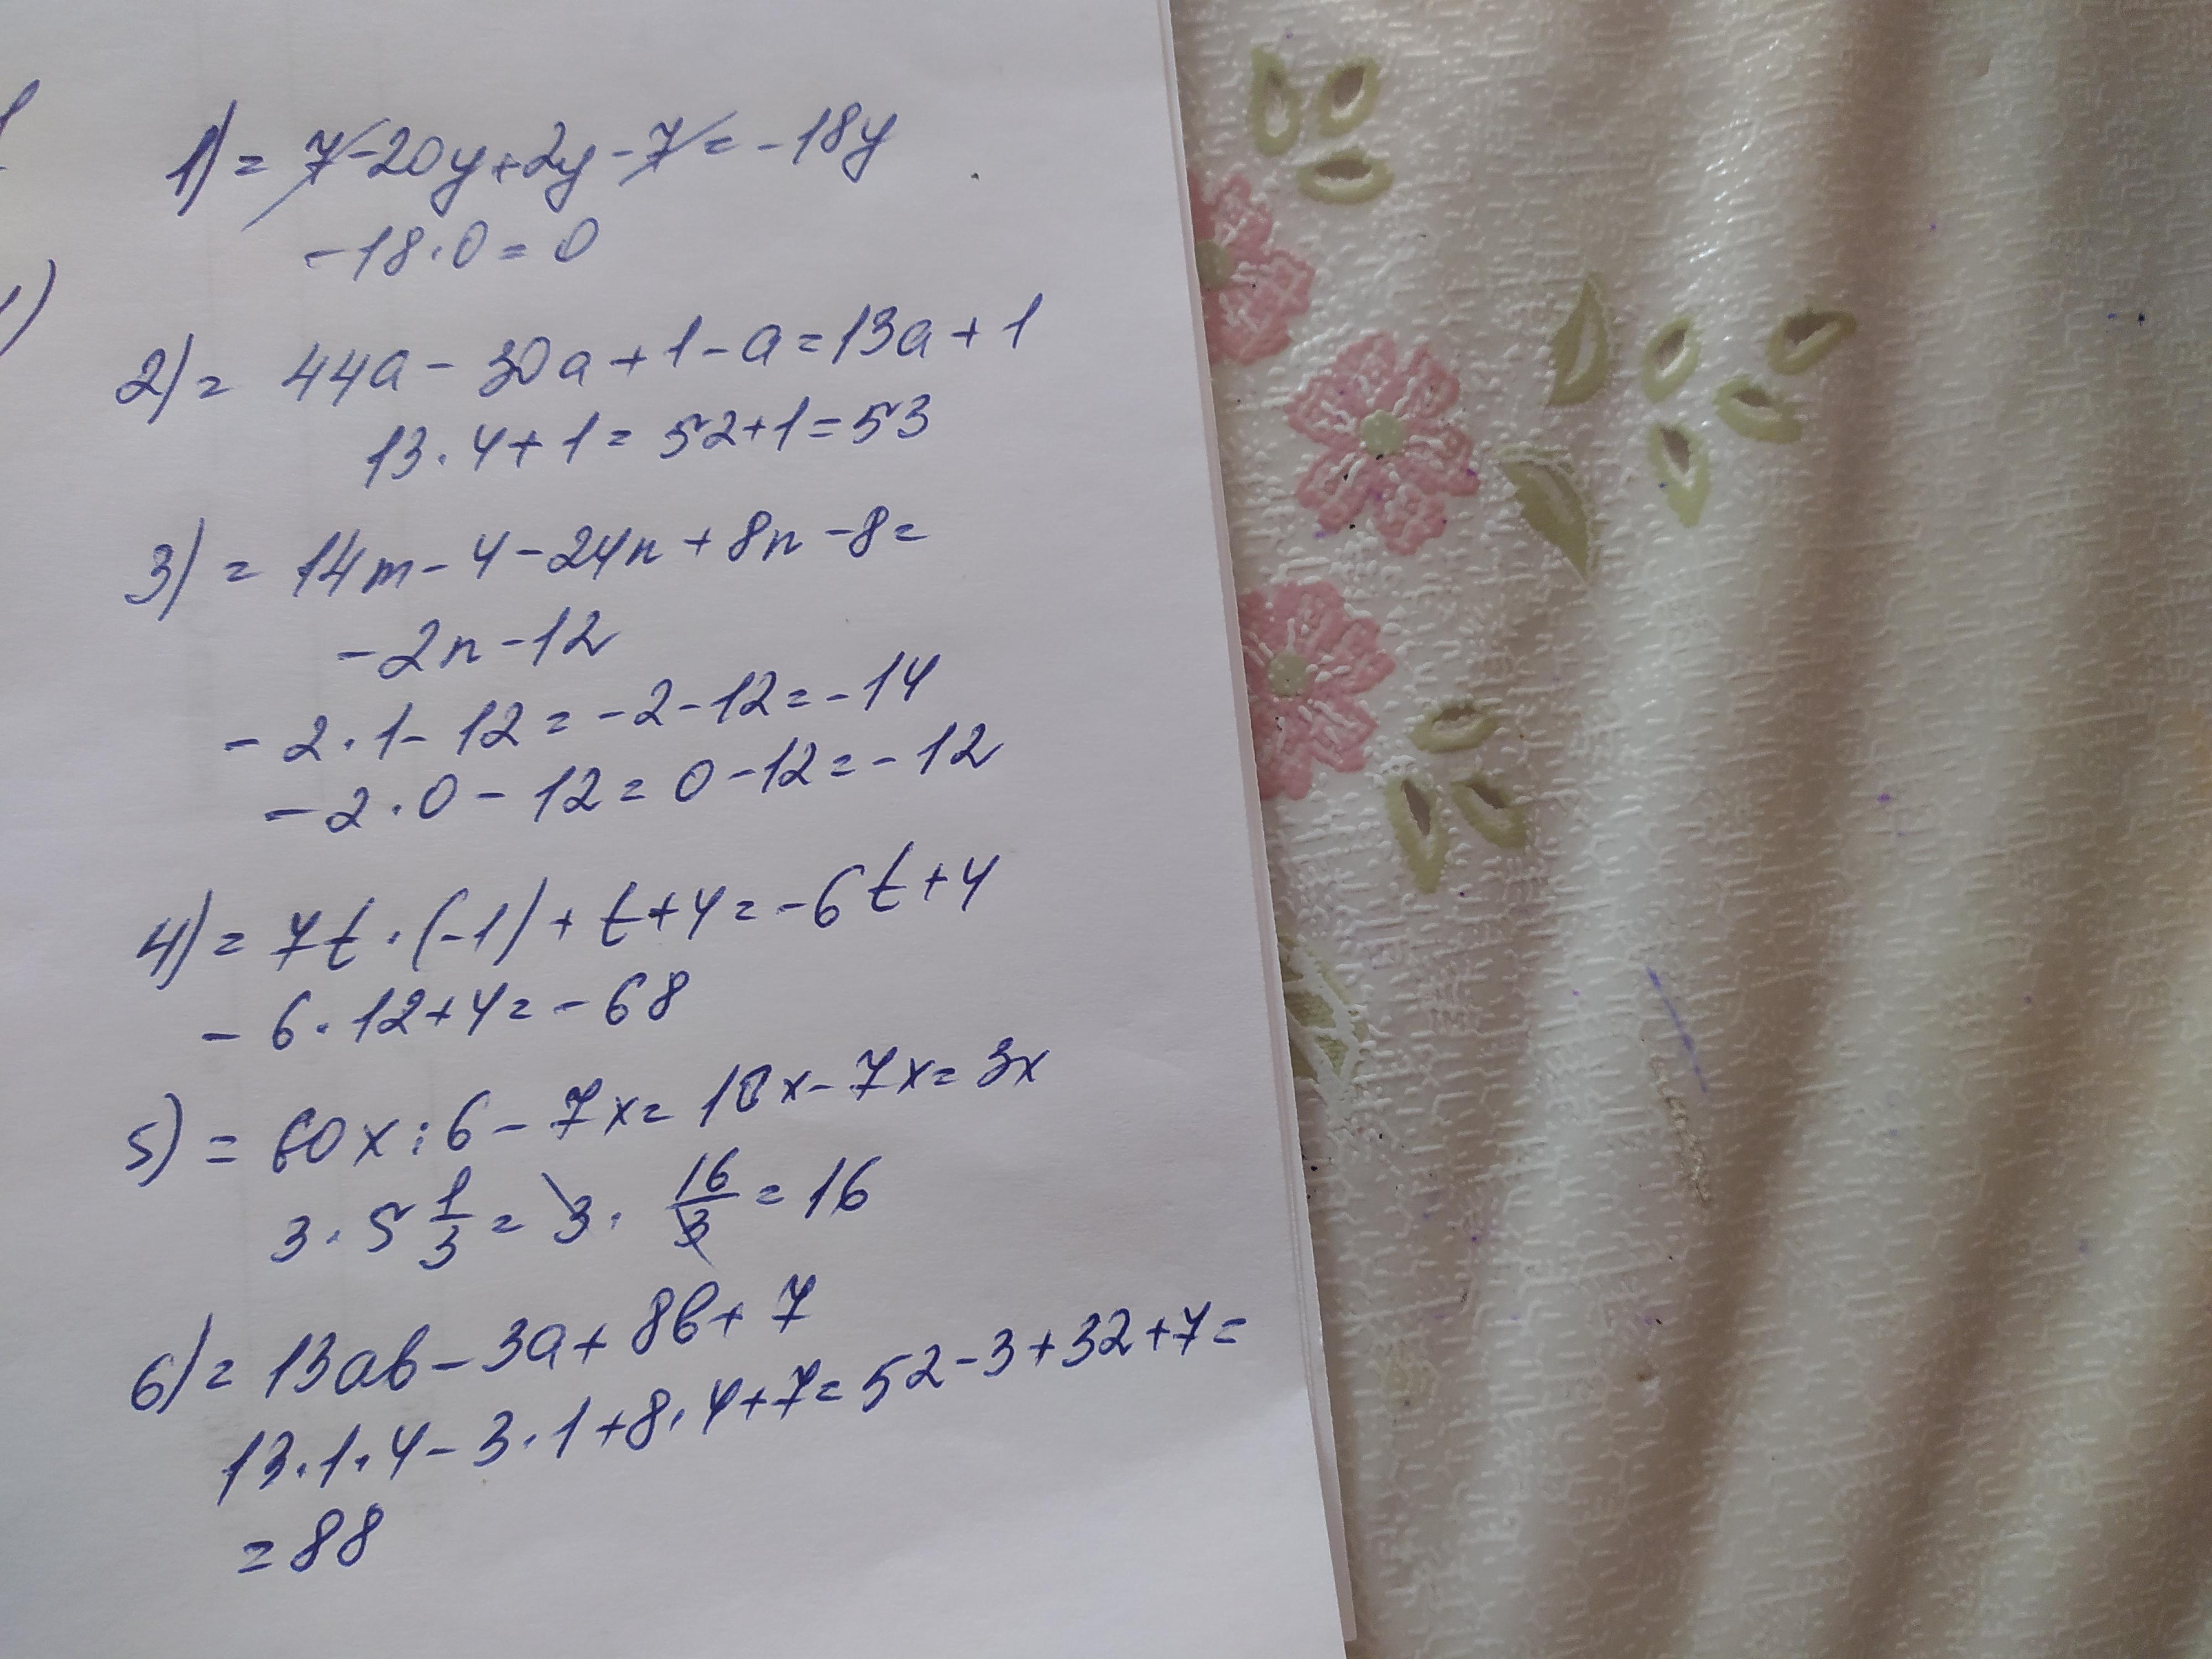 1) = 7-20y+2y-7 = -18y
-18·0=0
2) = 44a - 30a + 1 - a = 13a + 1
13·4+1 = 52+1 = 53
3) = 14m - 4 - 24n + 8n - 8 =
-2n - 12
-2·1 - 12 = -2 - 12 = -14
-2·0 - 12 = 0 - 12 = -12
4) = 7t·(-1) + t + 4 = -6t + 4
-6·12+4 = -68
5) = 60x : 6 - 7x = 10x - 7x = 3x
3·5 1/3 = 3· 16/3 = 16
6) = 13ab - 3a + 8b + 7
13·1·4 - 3·1 + 8·4 + 7 = 52 - 3 + 32 + 7 =
= 88